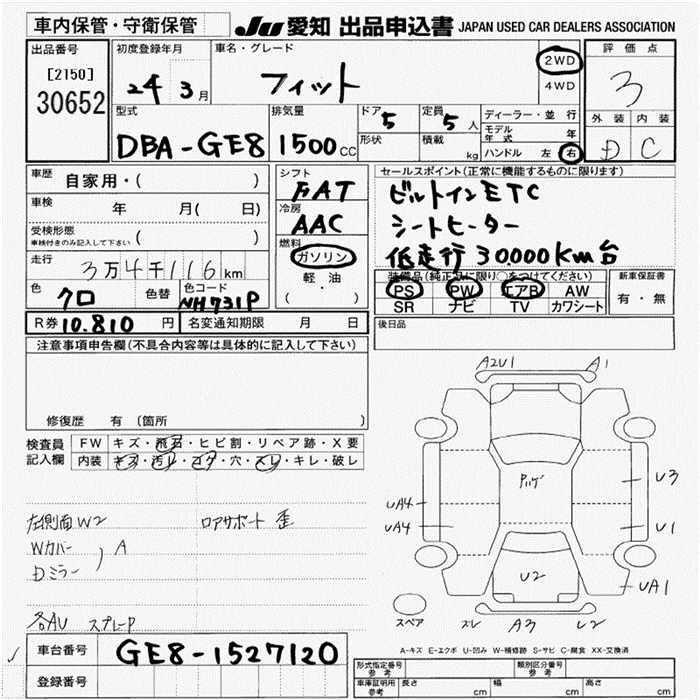 車内保管・守衛保管
JU 愛知 出品申込書 JAPAN USED CAR DEALERS ASSOCIATION
出品番号
[2150]
30652
初度登録年月
24 3月
車名・グレード
フィット
2WD
4WD
評価点
3
外装 内装
D C
型式
DBA-GE8
排気量
1500cc
ドア 5
形状
定員 5人
積載 kg
ディーラー・並行
モデル年式 年
ハンドル 左 右
車歴 自家用・( )
車検 年 月(日)
受検形態
車検付きのみ記入して下さい ( )
走行 3万4千116km
色 クロ 色替 色コード NH731P
R券 10.810円 名変通知期限 月 日
シフト
FAT
冷房
AAC
燃料
ガソリン
軽・油
( )
セールスポイント(正常に機能するものに限ります)
ビルトインETC
シートヒーター
低走行30.000Km台
装備品(純正品に限り○をつけてください)
PS PW エアB AW
SR ナビ TV カワシート
新車保証書
有・無
後日品
注意事項申告欄(不具合内容等は具体的に記入して下さい)
修復歴 有(箇所 )
検査員記入欄
FW キズ・飛石・ヒビ割・リペア跡・X要
内装 キズ・汚レ・コゲ・穴・スレ・キレ・破レ
左側面W2 ロアサポート歪
Wカバー
Dミラー ) A
各AU スプレーP
A2U1 A1
U3
UA4
UA4 U1
U2 UA1
スペア
スレ A3 U2
A-キズ E-エクボ U-凹み W-補修跡 S-サビ C-腐食 XX-交換済
車台番号 GE8-1527120
登録番号
形式指定番号 参考
類別区分番号 参考
車庫証明用 参考 長さ cm 幅 cm 高さ cm